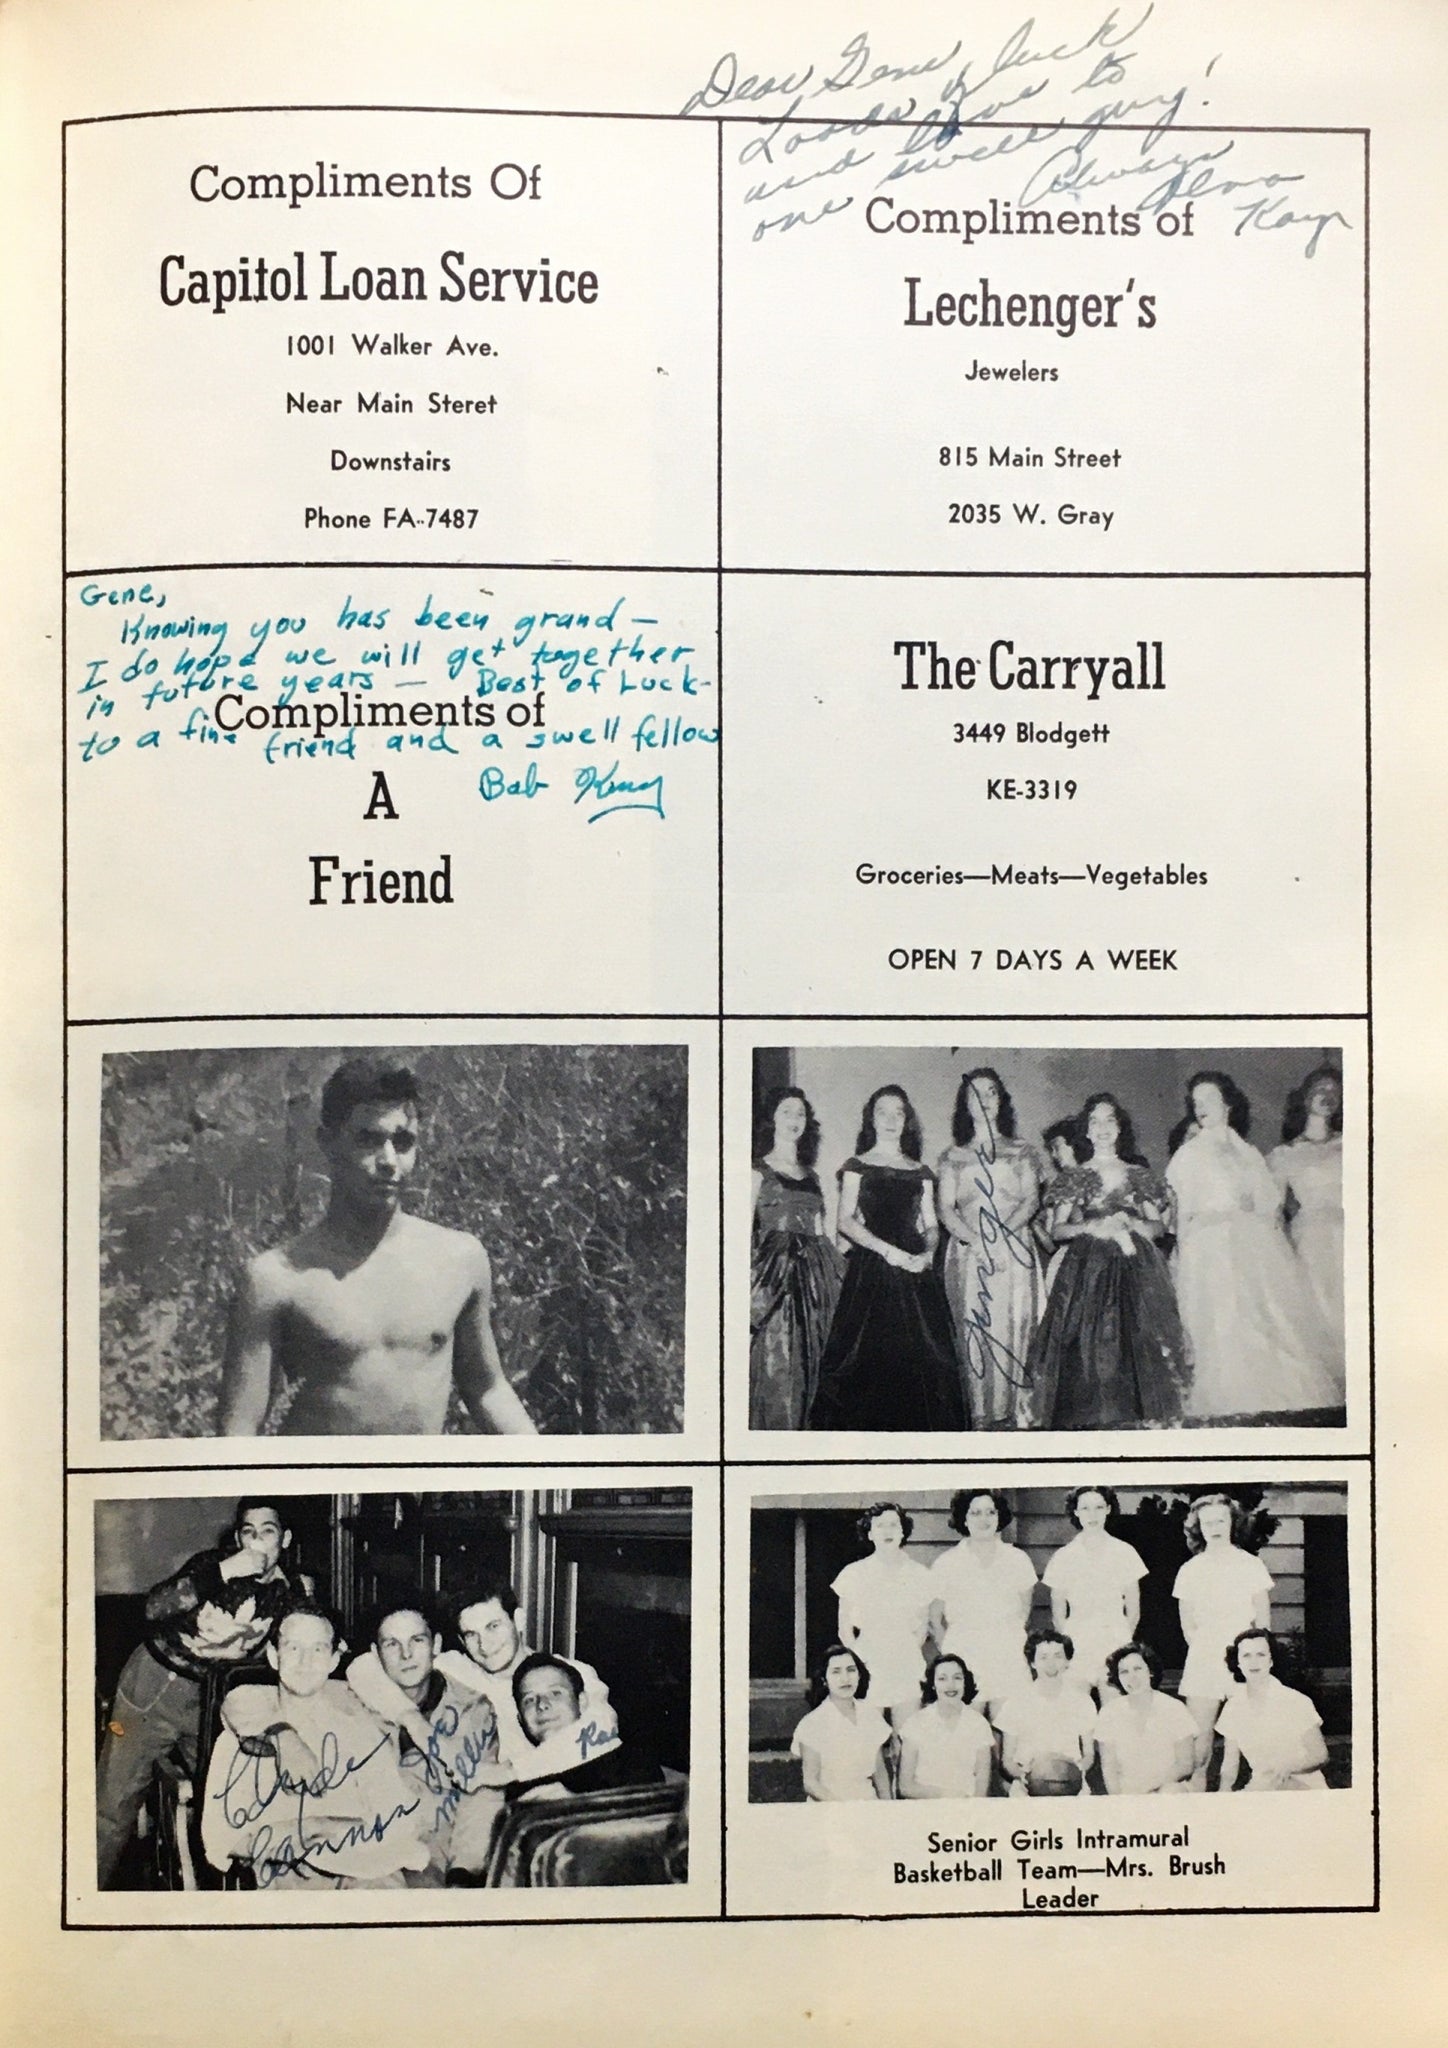 Dear Gene,
Loads of luck
and love to
one swell guy!
Always
Kaye
Compliments Of
Capitol Loan Service
1001 Walker Ave.
Near Main Steret
Downstairs
Phone FA-7487
Compliments of
Lechenger's
Jewelers
815 Main Street
2035 W. Gray
Gene,
Knowing you has been grand —
I do hope we will get together
in future years — Best of Luck-
to a fine friend and a swell fellow
Bob
Compliments of
A
Friend
The Carryall
3449 Blodgett
KE-3319
Groceries—Meats—Vegetables
OPEN 7 DAYS A WEEK
Ginger
Clyde
Cannon
Joe
Miller
Senior Girls Intramural
Basketball Team—Mrs. Brush
Leader